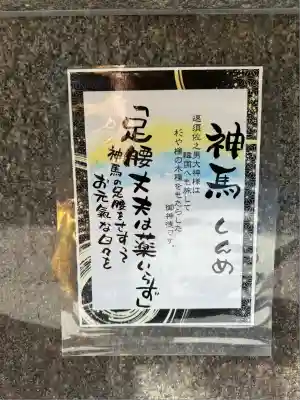 神馬 しんめ
速須佐之男大神様は
韓国へも旅して
杉や檜の木種をもたらした
御神徳です。
「足腰丈夫は薬いらず」
神馬の足腰をさすって
お元気な日々を